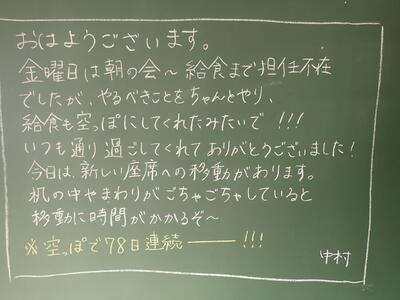 おはようございます。
金曜日は朝の会〜給食まで担任不在
でしたが、やるべきことをちゃんとやり、
給食も空っぽにしてくれたみたいで!!!
いつも通り過ごしてくれてありがとうございました!
今日は、新しい座席への移動があります。
机の中やまわりがごちゃごちゃしていると
移動に時間がかかるぞ〜
※空っぽで78日連続―――!!!
中村